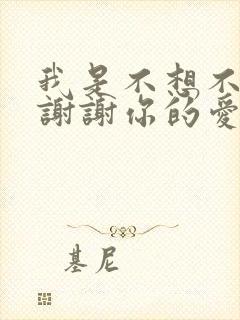 我是不想不
謝謝你的愛
基尼